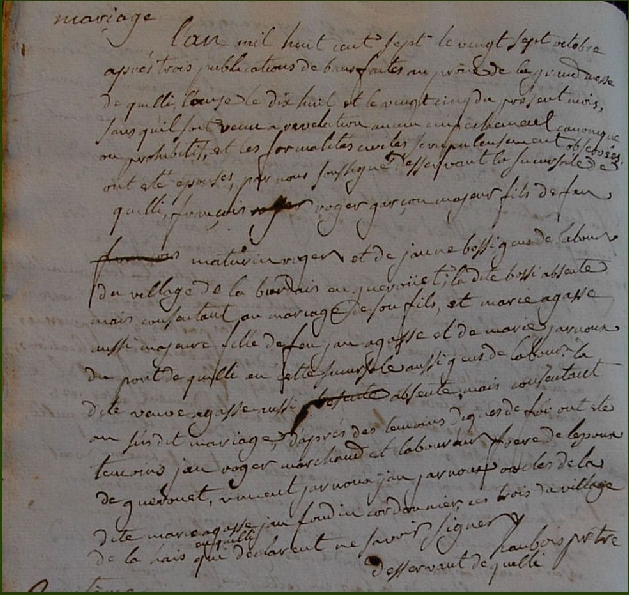 mariage
l'an mil huit cent sept le vingt sept octobre
après trois publications de bans faites au prône de la grand messe
de quilli, l'onze le dix huit et le vingt cinq du présent mois,
sans qu'il soit venu a revelation aucun empechement canonique
ou prohibitif, et les formalités civiles scrupuleusement observées
ont eté épousés, par nous soussigné desservant la succursale de
quilli, françois roger garçon majeur fils de feu
maturin roger et de janne bessi gens de labour
du village de la burdais en guenoüet; la dite bessi absente
mais consentant au mariage de son fils, et marie agasse
aussi majeure fille de feu jan agasse et de marie jarnoux
du pont de quilli en cette succursale aussi gens de labour: la
dite veuve agasse aussi absente mais consentant
au susdit mariage, d'après des temoins dignes de foi ont été
temoins jan roger marchand et laboureur frere de lepoux
de guenouet, vincent jarnoux jan jarnoux oncles de la
dite marie agasse jan foudin cordonnier ces trois du village
de la hais en quilli qui déclarent ne savoir signer
haubois prêtre
desservant de quilli